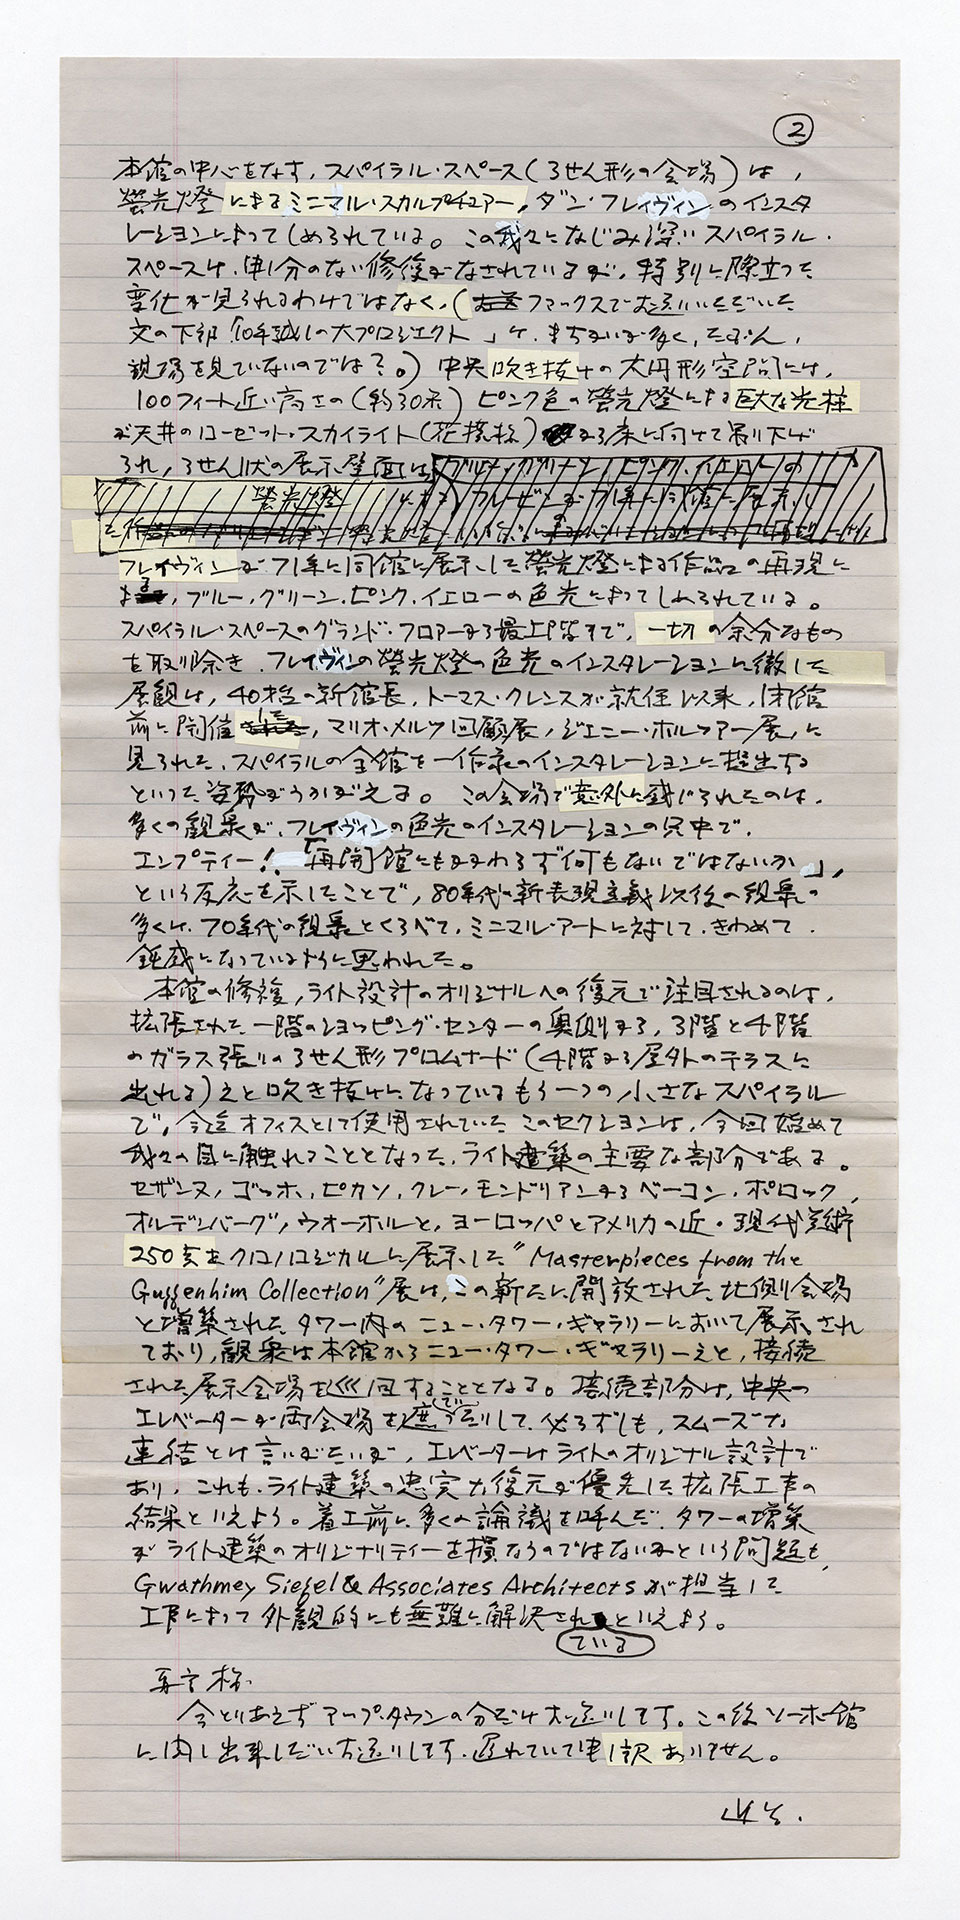 ②
本館の中心をなす、スパイラル・スペース(らせん形の会場)は、
螢光燈によるミニマル・スカルプチュアー、ダン・フレイヴィンのインスタ
レーションによってしめられている。この我々になじみ深いスパイラル・
スペースは、申し分のない修復がなされているが、特別に際立った
変化が見られるわけではなく、(ファックスでお送りいただいた
文の下部「10年越しの大プロジェクト」は、まちがいが多く、たぶん、
現場を見ていないのでは?。) 中央吹き抜けの大円形空間には、
100フィート近い高さの(約30米)ピンク色の螢光燈による巨大な光柱
が天井のローゼット・スカイライト(花模様)から床に向けて吊り下げ
られ、らせん状の展示壁面は
フレイヴィンが71年に同館に展示した螢光燈による作品の再現に
よる、ブルー、グリーン、ピンク、イエローの色光によってしめられている。
スパイラル・スペースのグランド・フロアーから最上階まで、一切の余分なもの
を取り除き、フレイヴィンの螢光燈の色光のインスタレーションに徹した
展観は、40代の新館長、トーマス・クレンスが就任以来、閉館
前に開催した、マリオ・メルツ回顧展、ジェニー・ホルツァー展、に
見られた、スパイラルの全館を一作家のインスタレーションに提出する
といった姿勢がうかがえる。この会場で意外に感じられたのは、
多くの観衆が、フレイヴィンの色光のインスタレーションの只中で、
エンプティー!「再開館にもかかわらず何もないではないか」、
という反応を示したことで、80年代の新表現主義以後の観衆の
多くは、70年代の観衆とくらべて、ミニマル・アートに対して、きわめて
鈍感になっているように思われた。
本館の修復、ライト設計のオリジナルへの復元で注目されるのは、
拡張された一階のショッピング・センターの奥側から、3階と4階
のガラス張りのらせん形プロムナード(4階から屋外のテラスに
出れる)えと吹き抜けになっているもう一つの小さなスパイラル
で、今迄オフィスとして使用されていたこのセクションは、今回始めて
我々の目に触れることとなった、ライト建築の主要な部分である。
セザンヌ、ゴッホ、ピカソ、クレー、モンドリアンからベーコン、ポロック、
オルデンバーグ、ウオーホルと、ヨーロッパとアメリカの近・現代美術
250点をクロノロジカルに展示した"Masterpieces from the
Guggenhim Collection"展は、この新たに開放された北側会場
と増築されたタワー内のニュー・タワー・ギャラリーにおいて展示され
ており、観衆は本館からニュー・タワー・ギャラリーえと、接続
された展示会場を巡回することとなる。接続部分は、中央の
エレベーターが両会場を遮つたりして、必らずしも、スムーズな
連結とは言いがたいが、エレベーターはライトのオリジナル設計で
あり、これも、ライト建築の忠実な復元が優先した拡張工事の
結果といえよう。着工前に多くの論議を呼んだ、タワーの増築
がライト建築のオリジナリティーを損なうのではないかという問題も、
Gwathmey Siegel & Associates Architects が担当した
工事によって外観的にも無難に解決されているといえよう。
今とりあえずアップ・タウンの分だけお送りします。この後ソーホー館
に関し出来しだいお送りします。遅れていて申し訳ありません。